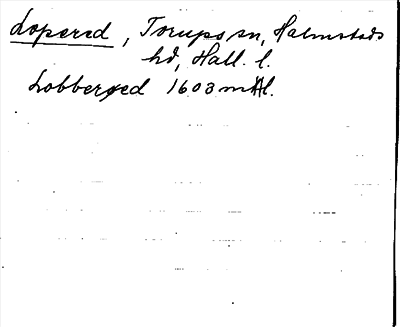 Lopered, Torups sn, Halmstads
hd, Hall. l.
Lobbered 1603 mHl.